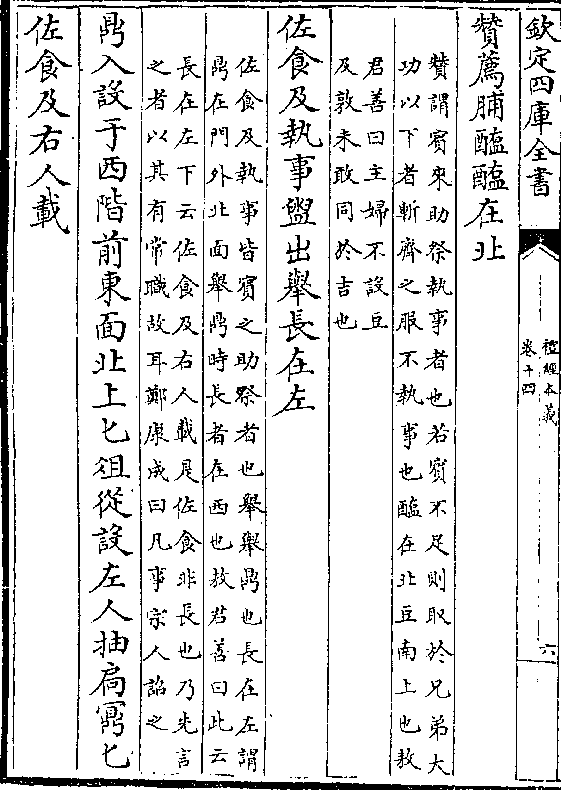 欽定四庫全書
禮經本義
卷十四
六
贊薦脯醢醢在北
贊謂賓來助祭執事者也若賓不足則取於兄弟大
功以下者斬齊之服不執事也醢在北豆南上也敖
君善曰主婦不設豆
及敦未敢同於吉也
佐食及執事盥出舉長在左
佐食及執事皆賓之助祭者也舉舉鼎也長在左謂
鼎在門外北面舉鼎時長者在西也敖君善曰此云
長在左下云佐食及右人載是佐食非長也乃先言
之者以其有常職故耳鄭康成曰凡事宗人詔之
鼎入設于西階前東面北上匕俎從設左人抽扃鼏匕
佐食及右人載